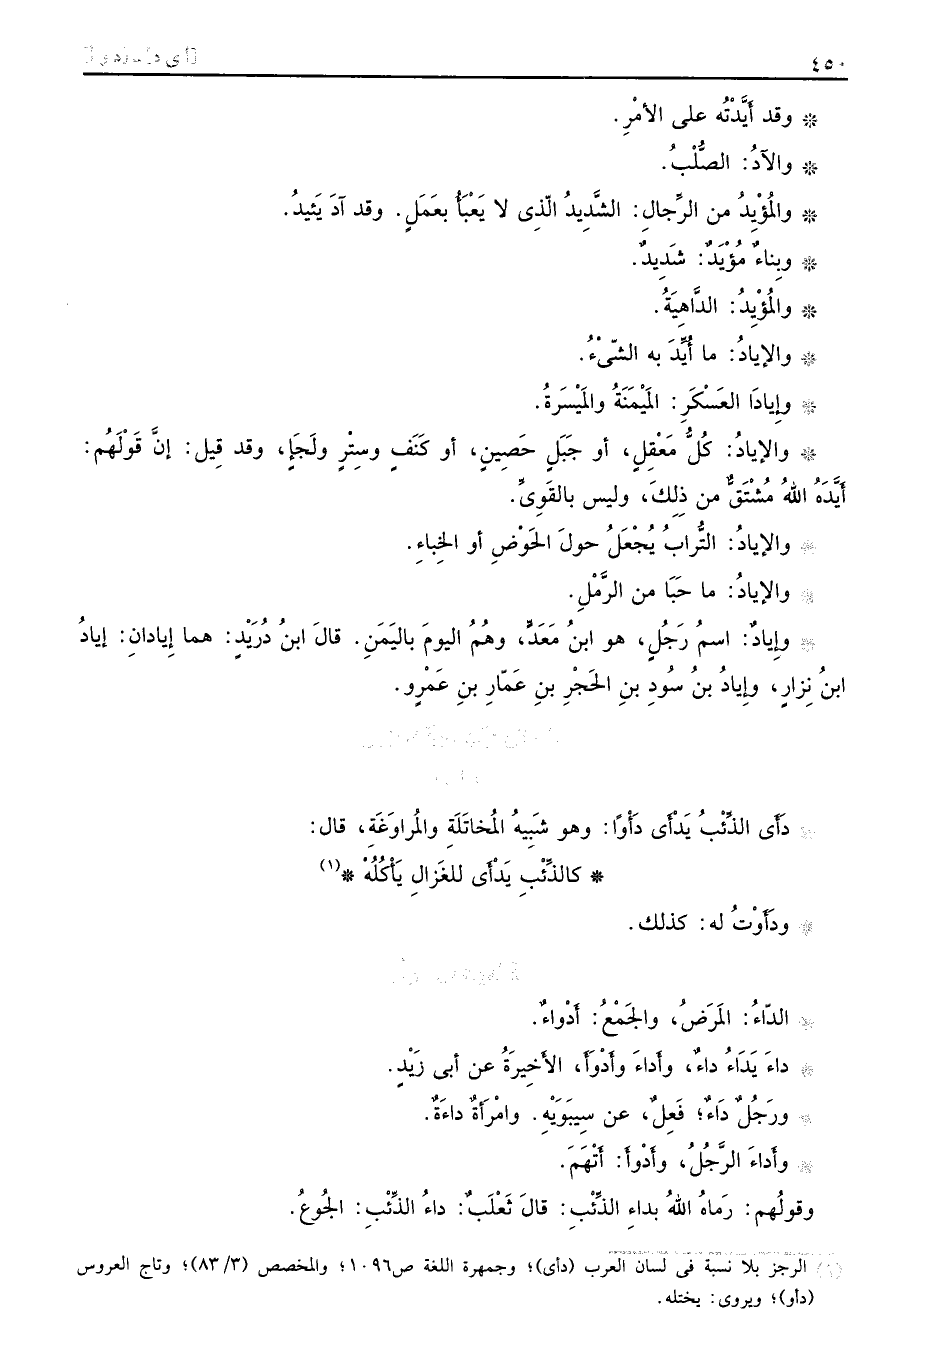 ٤٥٠
* وقد أَيَّدْتُه على الأمْرِ.
* والآدُ: الصُّلْبُ.
* والمُؤْيِدُ من الرِّجالِ: الشَّدِيدُ الّذِى لا يَعْبَأُ بعَمَلٍ. وقد آدَ يَئيدُ.
* وبِناءٌ مُؤْيَدٌ: شَدِيدٌ.
* والمُؤْيِدُ: الدَّاهِيَةُ.
* والإيادُ: ما أُيِّدَ به الشّىْءُ.
* وإيادَا العَسْكَرِ: المَيْمَنَةُ والمَيْسَرةُ.
* والإيادُ: كُلُّ مَعْقِلٍ، أو جَبَلٍ حَصِينٍ، أو كَنَفٍ وسِتْرٍ ولَجَإٍ، وقد قِيل: إنَّ قَوْلَهُم:
أَيَّدَهُ اللهُ مُشْتَقٌّ من ذلِكَ، وليس بالقَوِىِّ.
* والإيادُ: التُّرابُ يُجْعَلُ حولَ الحَوْضِ أو الخِباءِ.
* والإيادُ: ما حَبَا من الرَّمْلِ.
* وإيادٌ: اسمُ رَجُلٍ، هو ابنُ مَعَدٍّ، وهُمُ اليومَ باليَمَنِ. قالَ ابنُ دُرَيْدٍ: هما إيادان: إيادُ
ابنُ نِزارٍ، وإيادُ بنُ سُودِ بنِ الحَجْرِ بنِ عَمّارِ بنِ عَمْرٍو.
* دَأَى الذِّئْبُ يَدْأَى دَأْوًا: وهو شَبِيهُ المُخاتَلَةِ والمُراوَغَةِ، قال:
* كالذِّئْبِ يَدْأَى للغَزالِ يَأْكُلُهْ *(١)
* ودَأَوْتُ له: كذلك.
* الدّاءُ: المَرَضُ، والجَمْعُ: أَدْواءٌ.
* داءَ يَدَاءُ داءً، وأَداءَ وأَدْوَأَ، الأَخِيرَةُ عن أبى زَيْدٍ.
* ورَجُلٌ دَاءٌ؛ فَعِلٌ، عن سِيبَوَيْهِ. وامْرَأةٌ داءَةٌ.
* وأَداءَ الرَّجُلُ، وأَدْوأَ: أتْهَمَ.
وقولُهم: رَماهُ اللهُ بداءِ الذِّئْبِ: قالَ ثَعْلَبٌ: داءُ الذِّئْبِ: الجُوعُ.
(١) الرجز بلا نسبة فى لسان العرب (دأى)؛ وجمهرة اللغة ص١٠٩٦؛ والمخصص (٨٣/٣)؛ وتاج العروس
(دأو)؛ ويروى: يختله.